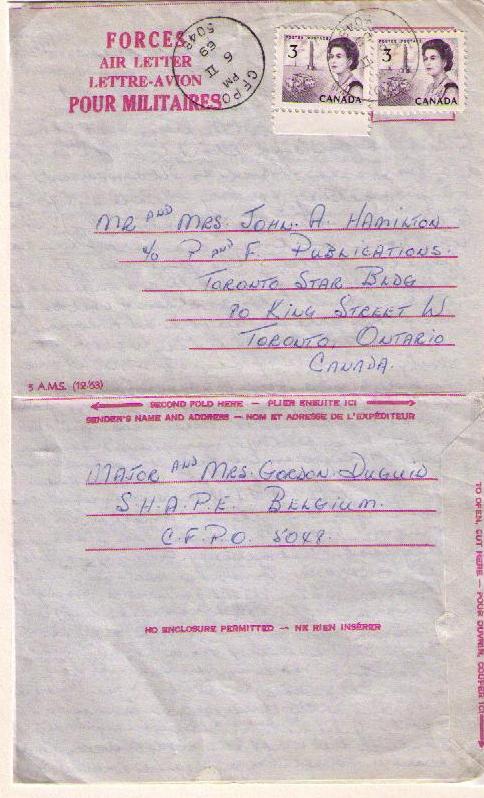 FORCES
AIR LETTER
LETTRE-AVION
POUR MILITAIRES
CFPO
5048
PM
6
II
69
POSTES POSTAGE
3
CANADA
POSTES POSTAGE
3
CANADA
MR AND MRS. JOHN. A. HAMILTON
c/o P AND F PUBLICATIONS.
TORONTO STAR BLDG
80 KING STREET W
TORONTO, ONTARIO
CANADA.
5 A.M.S. (12-53)
SECOND FOLD HERE — PLIER ENSUITE ICI
SENDER'S NAME AND ADDRESS — NOM ET ADRESSE DE L'EXPÉDITEUR
MAJOR AND MRS. GORDON DUGUID
S.H.A.P.E. BELGIUM.
C.F.P.O. 5048.
NO ENCLOSURE PERMITTED — NE RIEN INSÉRER
TO OPEN, CUT HERE — POUR OUVRIR, COUPER ICI